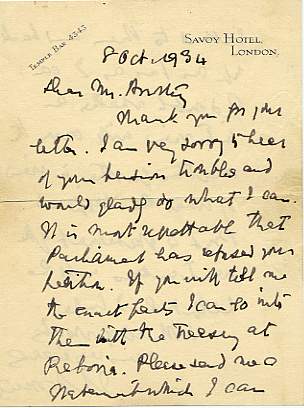 TEMPLE BAR 4343
SAVOY HOTEL,
LONDON.
8 Oct. 1934
Dear Mr.
Thank you for your
letter. I am very sorry to hear
of your pension troubles and
would gladly do what I can.
It is most regrettable that
Parliament has refused your
petition. If you will tell me
the exact facts I can go into
them with the Treasury at
Pretoria. Please send me a
statement which I can